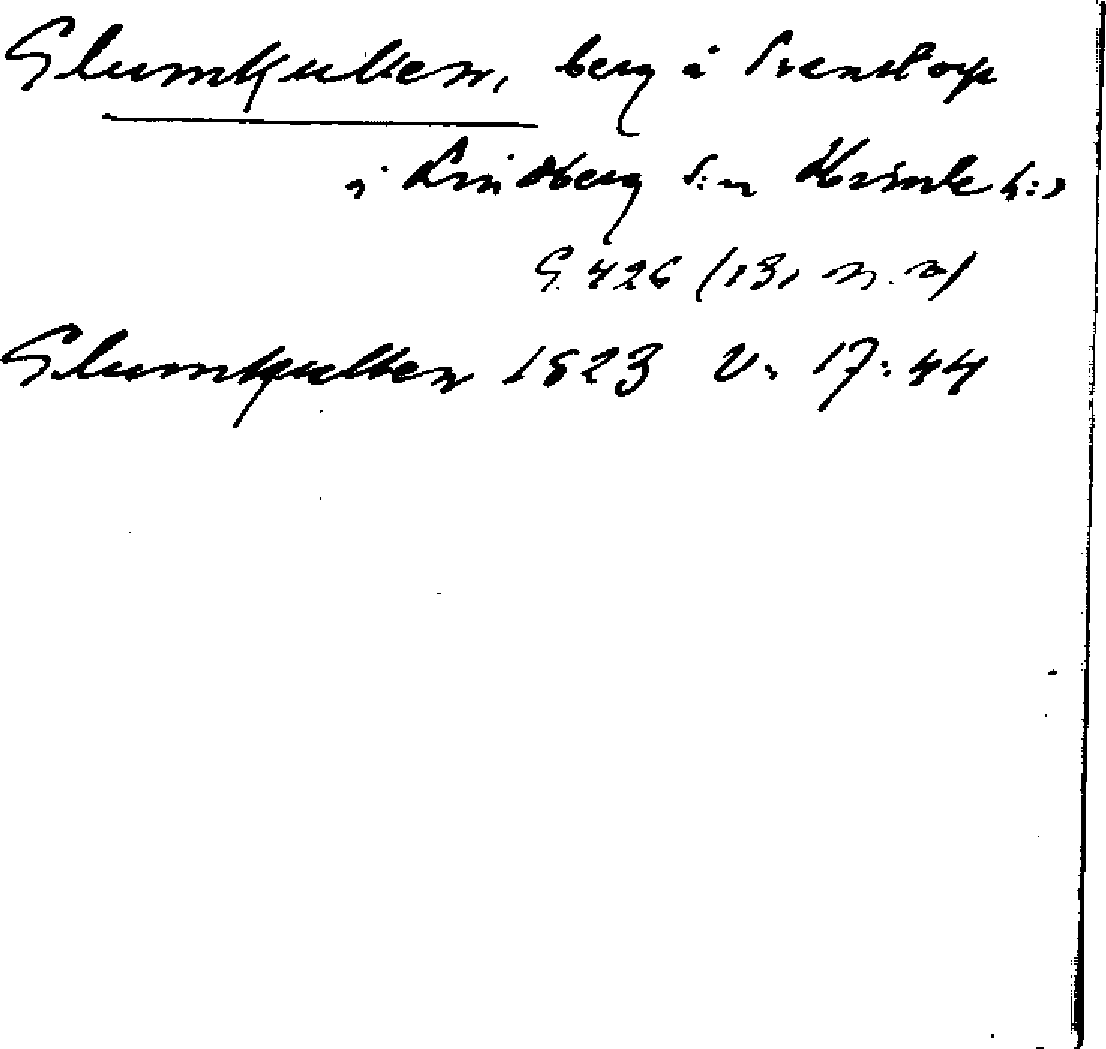 Glumkullen, berg i Svenstorp
i Lindberg s:n Himle h:d
G. 426 (131 n. v)
Glumkullen 1823 V: 17: 44